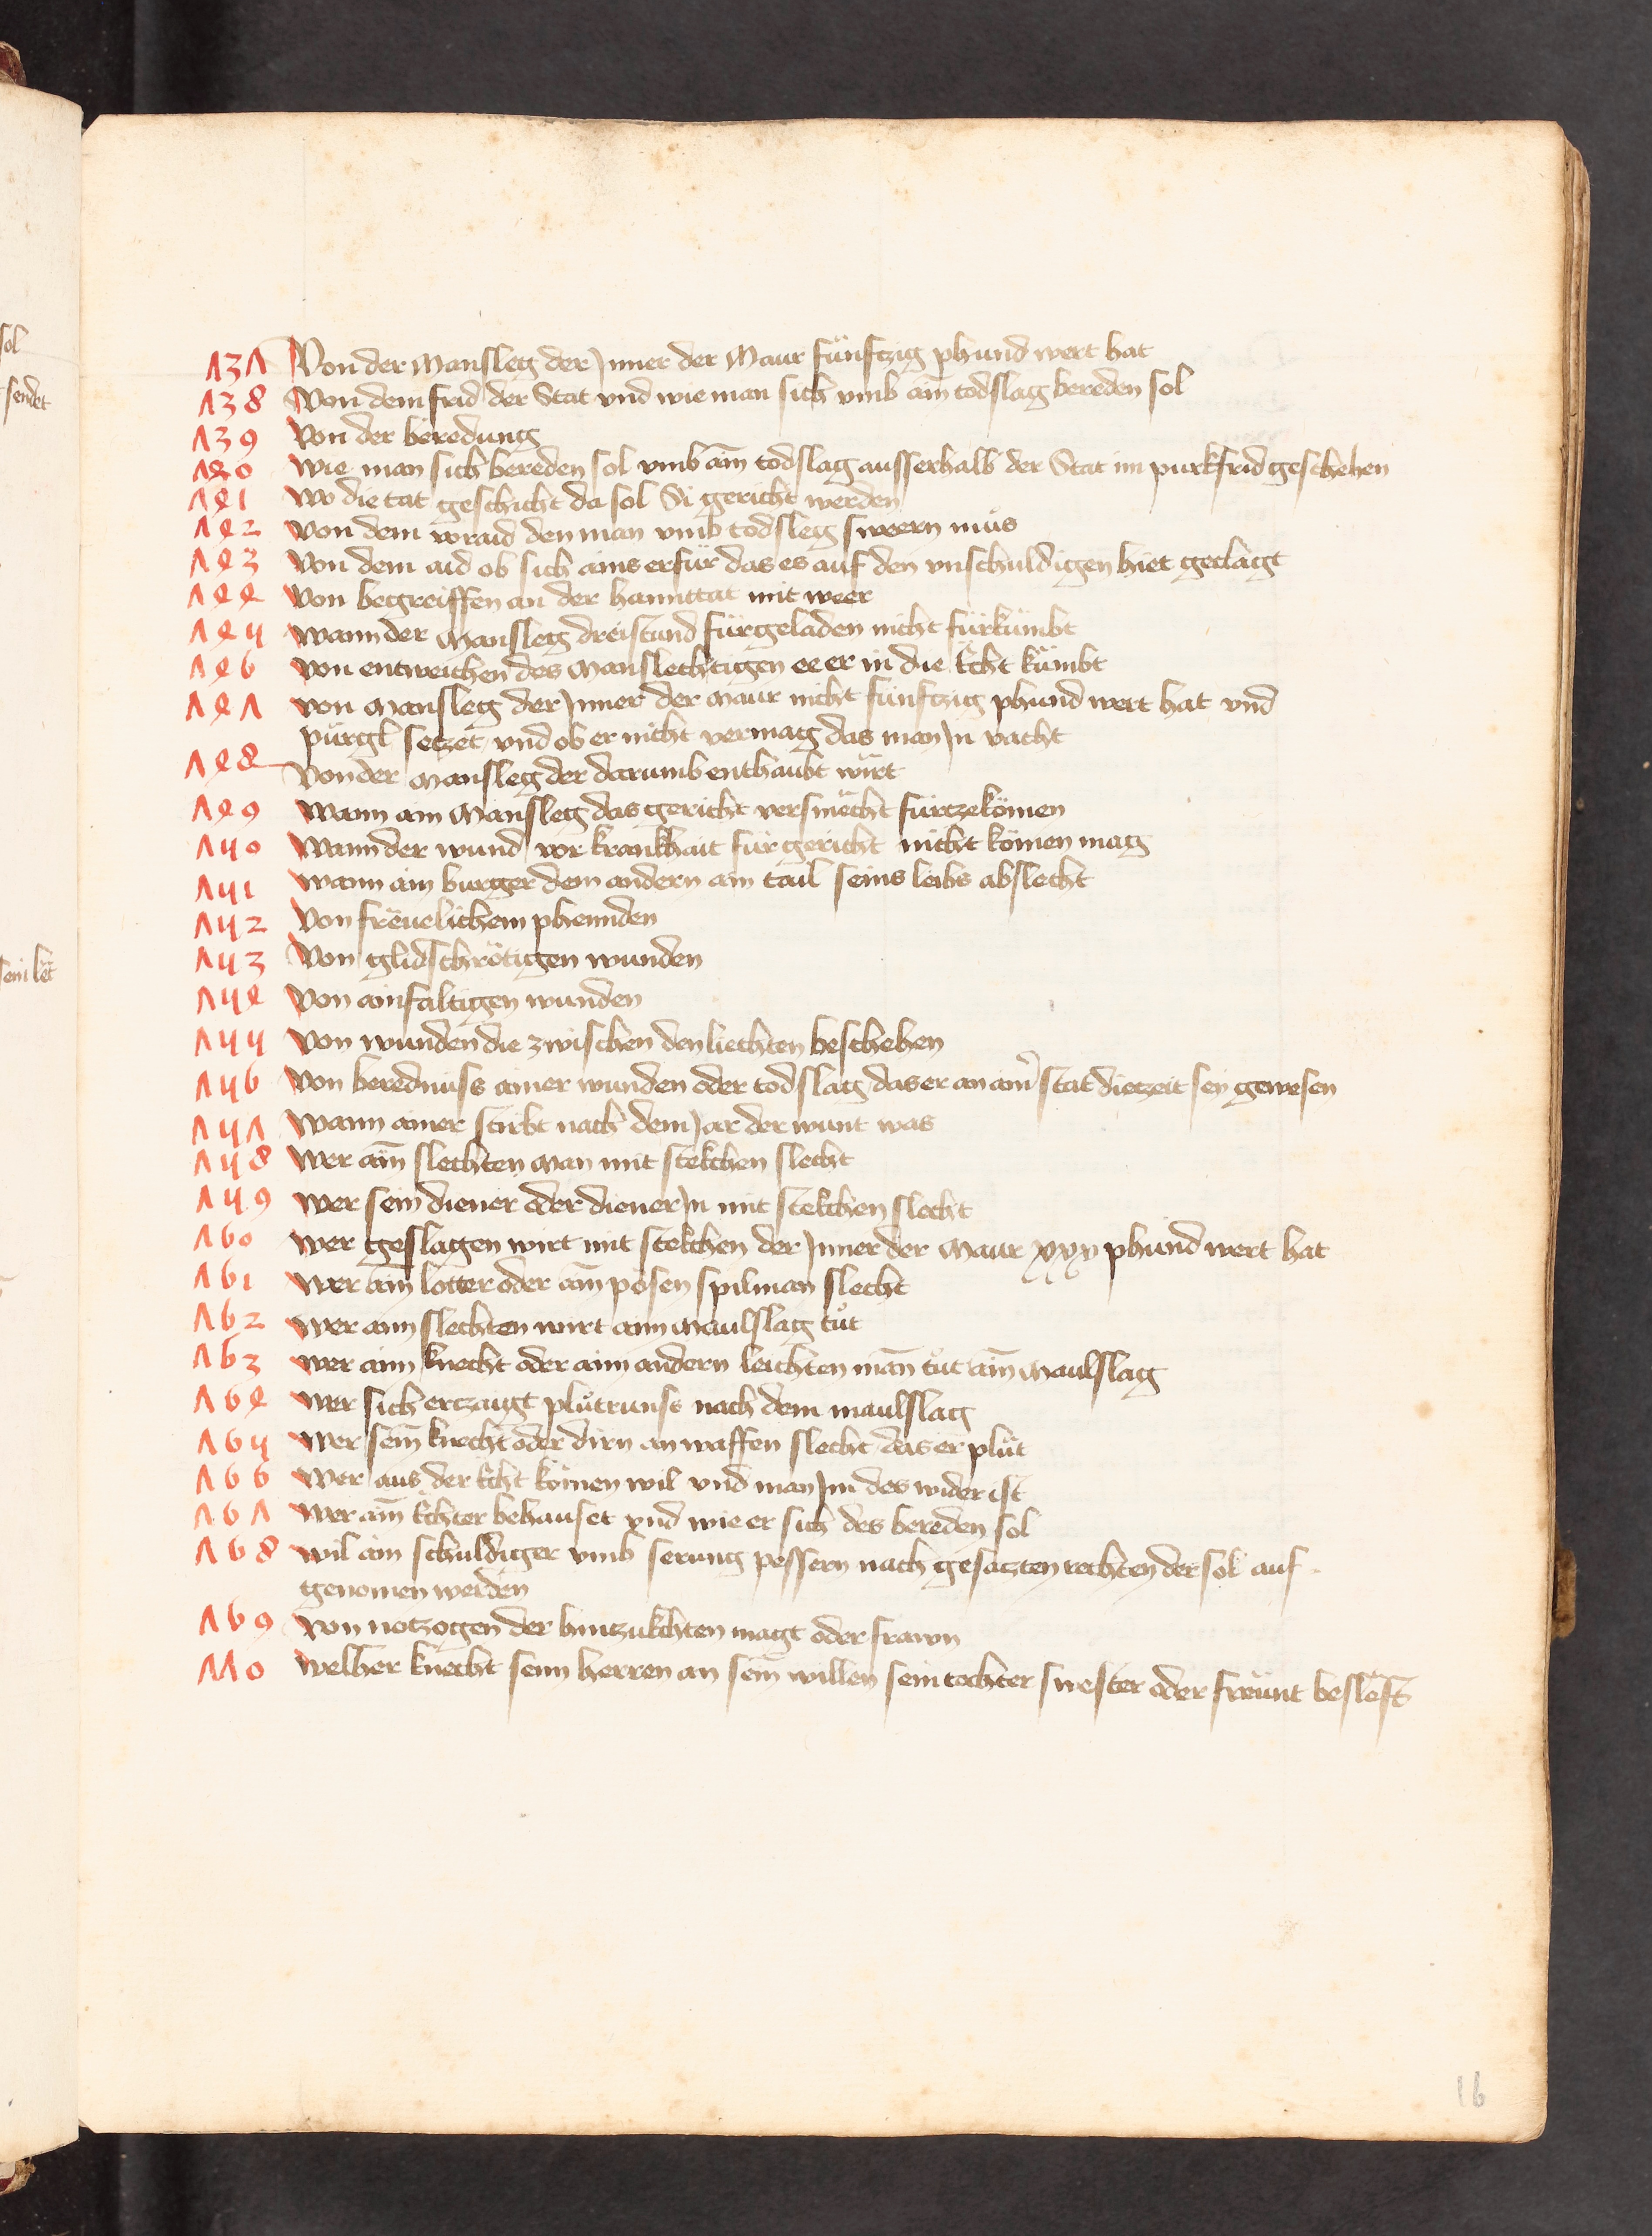 137 Von der Mansleg der Jnner der Maur fünftzig phund wert hat
138 Von dem frid der Stat vnd wie man sich vmb ain todslag bereden sol
139 Von der beredung
140 wie man sich bereden sol vmb ain todslag ausserhalb der Stat im purkfrid geschehen
141 wo die tat geschicht da sol Si gericht werden
142 von dem voraid den man vmb todsleg sweern mus
143 Von dem aid ob sich ains erfür das es auf den vnschuldigen hiet geclagt
144 Von begreiffen an der hannttat mit weer
145 wann der Mansleg dreistund fürgeladen nicht fürkümbt
146 von entweichen des Manslechtigen ee er in die Ëcht kümbt
147 von Mansleg der Jnner der Maur nicht fünftzig phund wert hat vnd
pürgl setzet vnd ob er nicht vermag das man Jn vacht
148 Von der Mansleg der darumb enthaubt wirt
149 Wann ain Mansleg das gericht versmecht fürtzekömen
150 Wann der wund vor krankhait für gericht nicht kömen mag
151 wann ain burger dem andern ain tail seins leibs abslecht
152 Von freuelichem phennden
153 Von glidschrötigen wunden
154 Von ainfaltigen wunden
155 Von wunden die zwischen den liechten beschehen
156 Von berednuss ainer wunden oder todslag das er an ainer stat die zeit sey gewesen
157 Wann ainer stirbt nach dem Jar der wunt was
158 Wer ain slechten Man mit stekchen slecht
159 wer sein diener oder dienerJn mit stekchen slecht
160 wer geslagen wirt mit stekchen der Jnner der Maur xxx phund wert hat
161 Wer ain lotter oder ain pösen spilman slecht
162 wer ainn slechten wirt ainn Maulslag tut
163 wer ainn knecht oder ainn andern leichten man tut ain Maulslag
164 wer sich ertzaigt plutrunss nach dem maulslag
165 wer sein knecht oder dirn an waffen slecht das er plut
166 Wer aus der Ëcht kömen wil vnd man Jm des wider ist
167 Wer ain Ëchter behauset vnd wie er sich des bereden sol
168 wil ain schuldiger vmb serung pessern nach gesatzten rechten der sol auf
genomen werden
169 von notzogen der hintzukchten magt oder frawn
170 welher knecht seinn herren an sein willen sein tochter swester oder freünt beslefft
16
sol
sendet